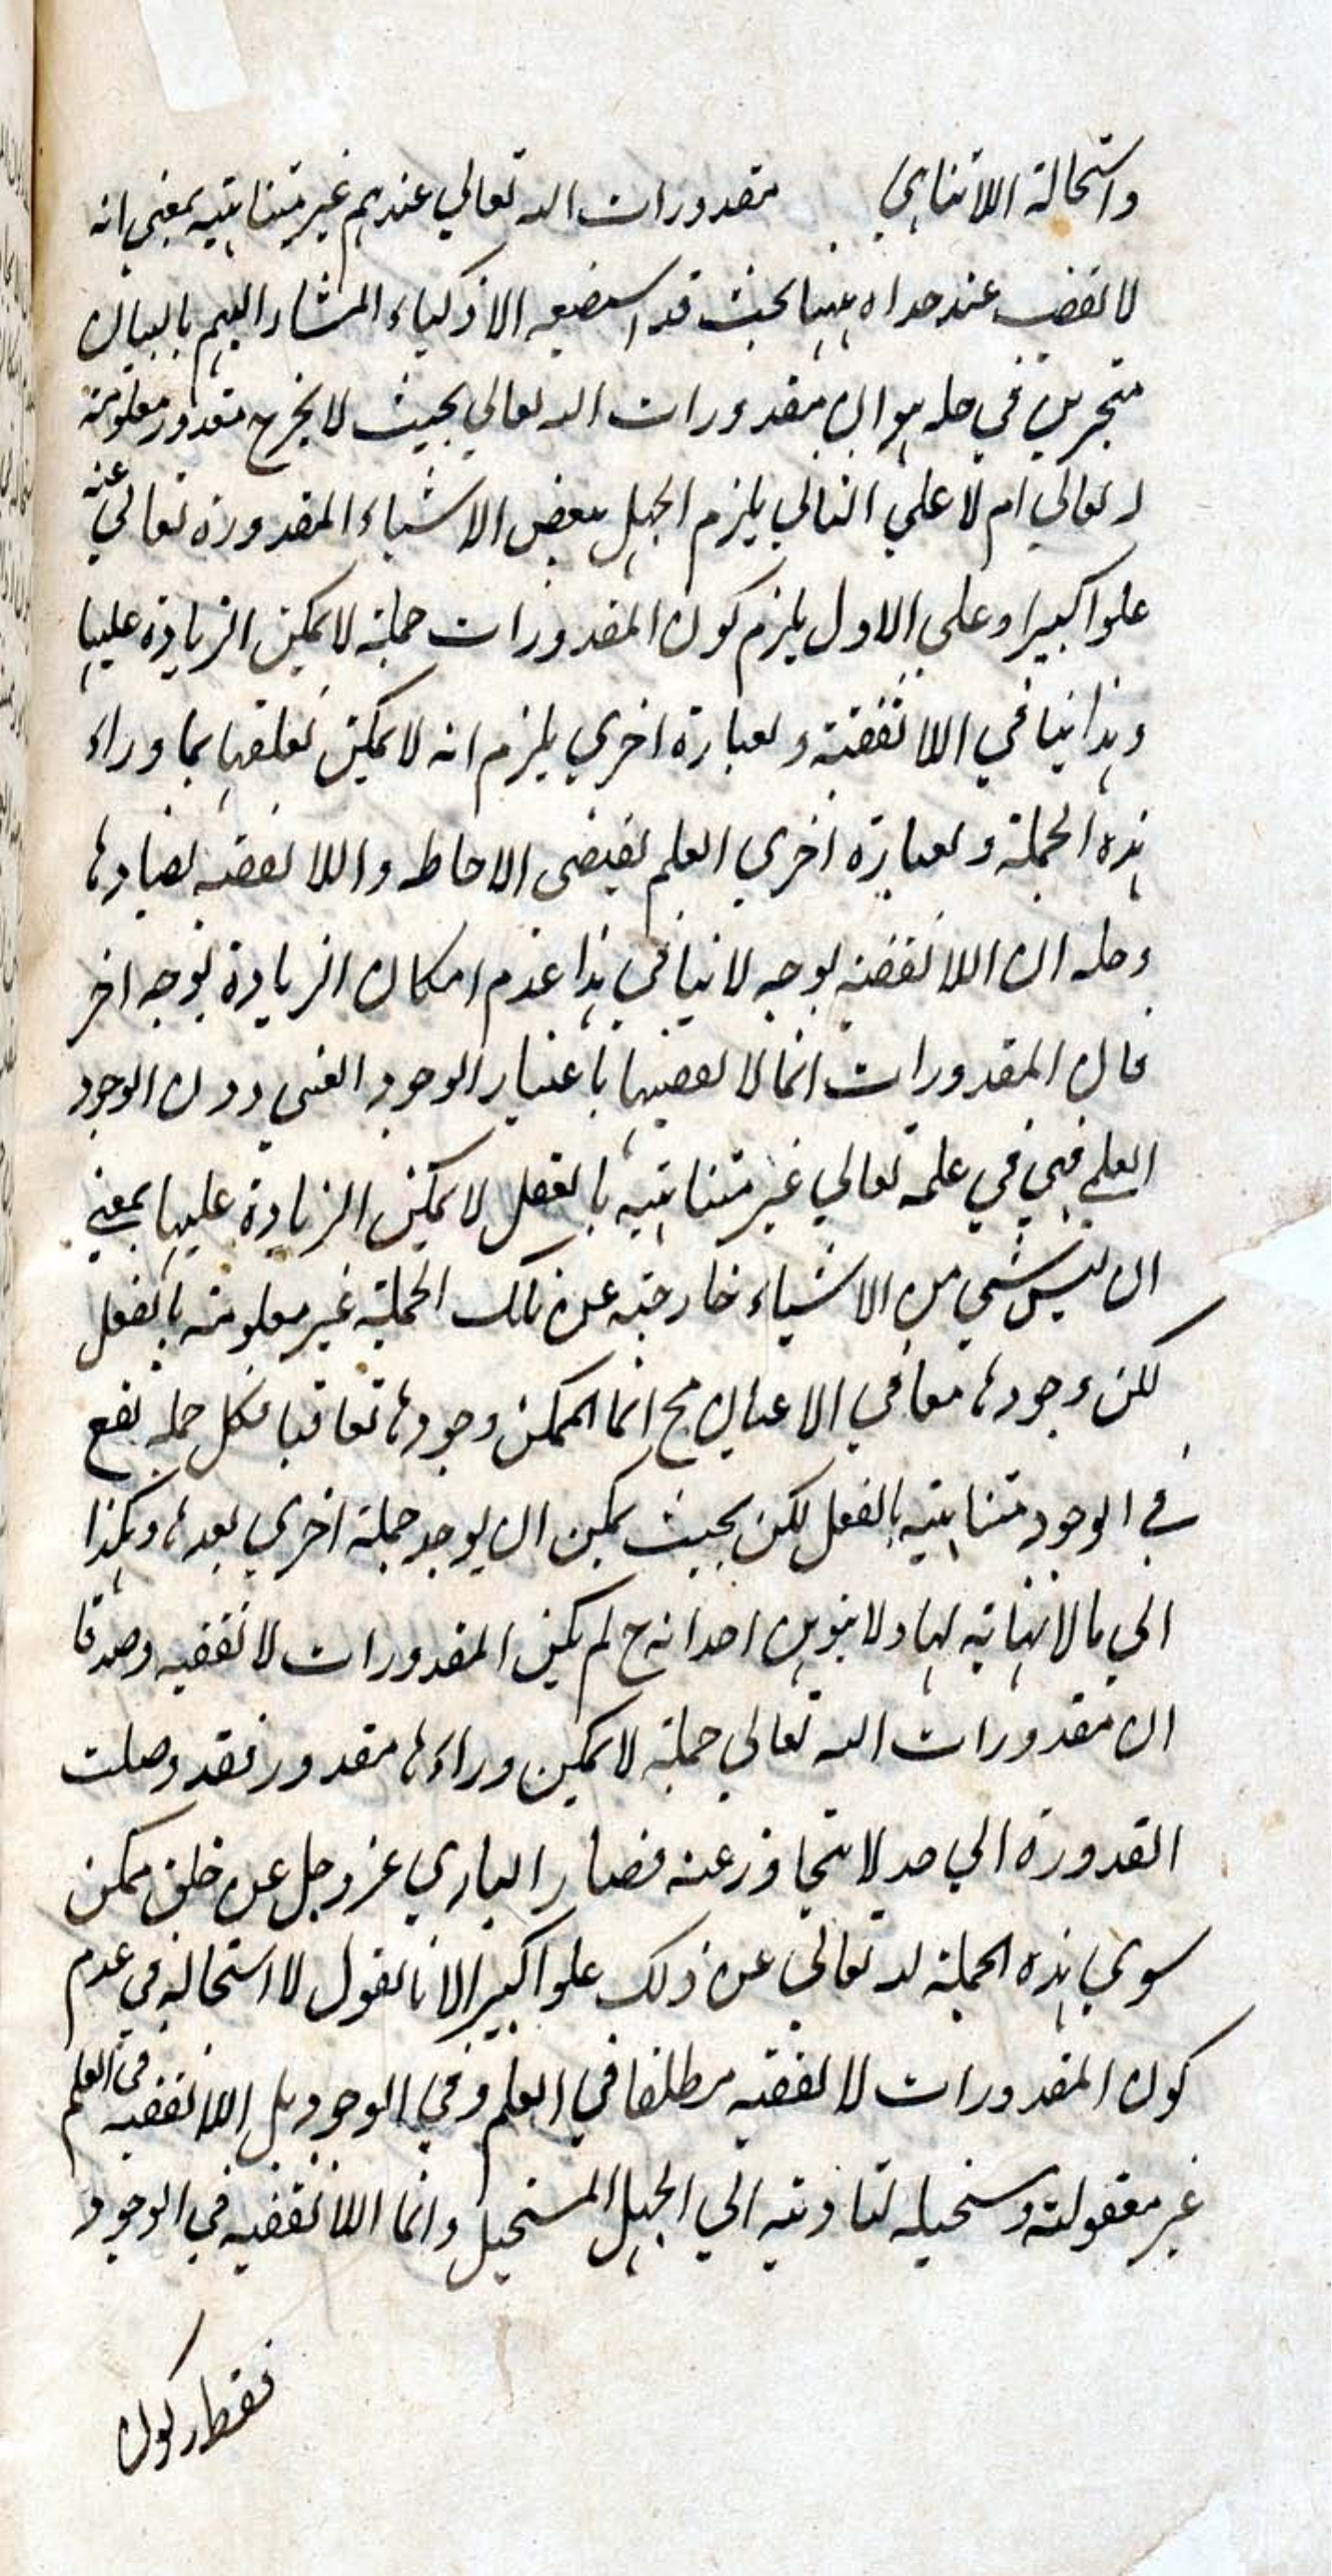 واستحالة اللاتناهي مقدورات الله تعالي عندهم غير متناهية بمعني انه
لا تقف عند حد اه ههنا بحث قد استصعبه الاذكياء المشار اليهم بالبنان
متحيرين في حله هو ان مقدورات الله تعالي بحيث لا يخرج مقدور معلومة
له تعالي ام لا علي الثاني يلزم الجهل ببعض الاشياء المقدورة تعالي عنه
علوا كبيرا وعلي الاول يلزم كون المقدورات جملة لا يمكن الزيادة عليها
وهذا ينافي اللاتقفية وبعبارة اخري يلزم انه لا يمكن تعلقها بما وراء
هذه الجملة وبعبارة اخري العلم يقتضي الاحاطه واللاتقفيه تضادها
وحله ان اللاتقفية بوجه لا ينافي هذا عدم امكان الزيادة بوجه اخر
فان المقدورات انما لا تقفيتها باعتبار الوجود العيني دون الوجود
العلمي فهي في علمه تعالي غير متناهية بالفعل لا يمكن الزيادة عليها بمعني
ان ليس شي من الاشياء خارجة عن تلك الجملة غير معلومة بالفعل
لكن وجودها معا في الاعيان مح انما الممكن وجودها تعاقبا فكل جملة تقع
في الوجود متناهية بالفعل لكن بحيث يمكن ان يوجد جملة اخري بعدها وهكذا
الي ما لا نهاية لها ولا يتوهمن احد انه ح لم يكن المقدورات لا تقفيه وصدقا
ان مقدورات الله تعالي جملة لا يمكن وراءها مقدور فقد وصلت
القدورة الي حد لا تتجاوز عنه فصار الباري عز وجل عن خلق ممكن
سوي هذه الجملة له تعالي عن ذلك علوا كبيرا لانا نقول لا استحالة في عدم
كون المقدورات لا تقفيه مطلقا في العلم وفي الوجود بل اللاتقفيه في العلم
غير معقولة ومستحيله لتاديته الي الجهل المستحيل وانما اللاتقفيه في الوجود
فقط وكون